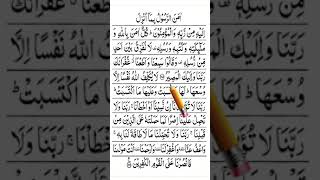 اٰمَنَ الرَّسُوْلُ بِمَاۤ اُنْزِلَ
اِلَيْهِ مِنْ رَّبِّهٖ وَالْمُؤْمِنُوْنَ ؕ كُلٌّ اٰمَنَ بِاللّٰهِ وَ
مَلٰٓئِكَتِهٖ وَكُتُبِهٖ وَرُسُلِهٖ ۟ لَا نُفَرِّقُ بَيْنَ اَحَدٍ
مِّنْ رُّسُلِهٖ ۟ وَقَالُوْا سَمِعْنَا وَاَطَعْنَا ۗ غُفْرَانَكَ
رَبَّنَا وَاِلَيْكَ الْمَصِيْرُ لَا يُكَلِّفُ اللّٰهُ نَفْسًا اِلَّا
وُسْعَهَا ؕ لَهَا مَا كَسَبَتْ وَعَلَيْهَا مَا اكْتَسَبَتْ ؕ
رَبَّنَا لَا تُؤَاخِذْنَاۤ اِنْ نَّسِيْنَاۤ اَوْ اَخْطَاْنَا ۚ رَبَّنَا وَلَا
تَحْمِلْ عَلَيْنَاۤ اِصْرًا كَمَا حَمَلْتَهٗ عَلَى الَّذِيْنَ مِنْ
قَبْلِنَا ۚ رَبَّنَا وَلَا تُحَمِّلْنَا مَا لَا طَاقَةَ لَنَا بِهٖ ۚ
وَاعْفُ عَنَّا ۥ وَاغْفِرْ لَنَا ۥ وَارْحَمْنَا ۥ اَنْتَ مَوْلٰىنَا
فَانْصُرْنَا عَلَى الْقَوْمِ الْكٰفِرِيْنَ